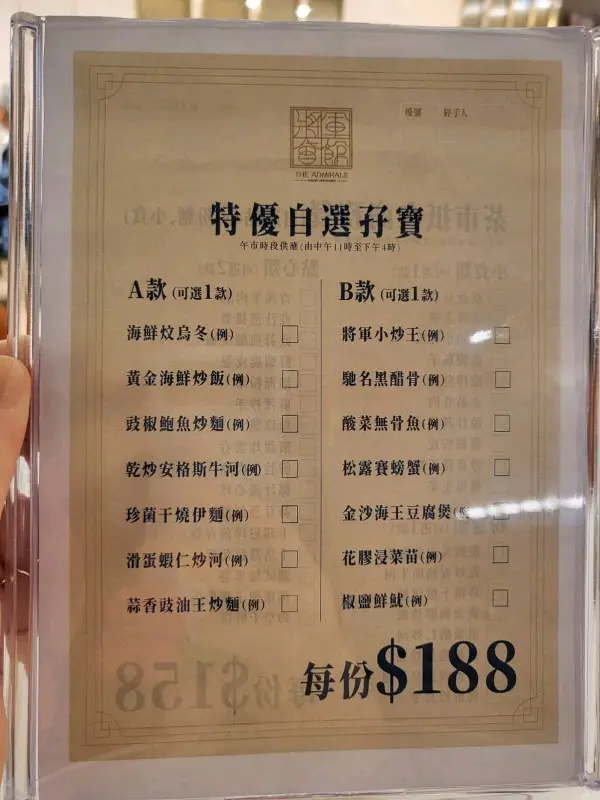 將軍會館
THE ADMIRALS
檯號 經手人
特優自選孖寶
午市時段供應(由中午11時至下午4時)
A款(可選1款)
海鮮炆烏冬(例)
黃金海鮮炒飯(例)
豉椒鮑魚炒麵(例)
乾炒安格斯牛河(例)
珍菌干燒伊麵(例)
滑蛋蝦仁炒河(例)
蒜香豉油王炒麵(例)
B款(可選1款)
將軍小炒王(例)
馳名黑醋骨(例)
酸菜無骨魚(例)
松露賽螃蟹(例)
金沙海王豆腐煲(例
花膠浸菜苗(例)
椒鹽鮮魷(例)
每份$188
每份$158